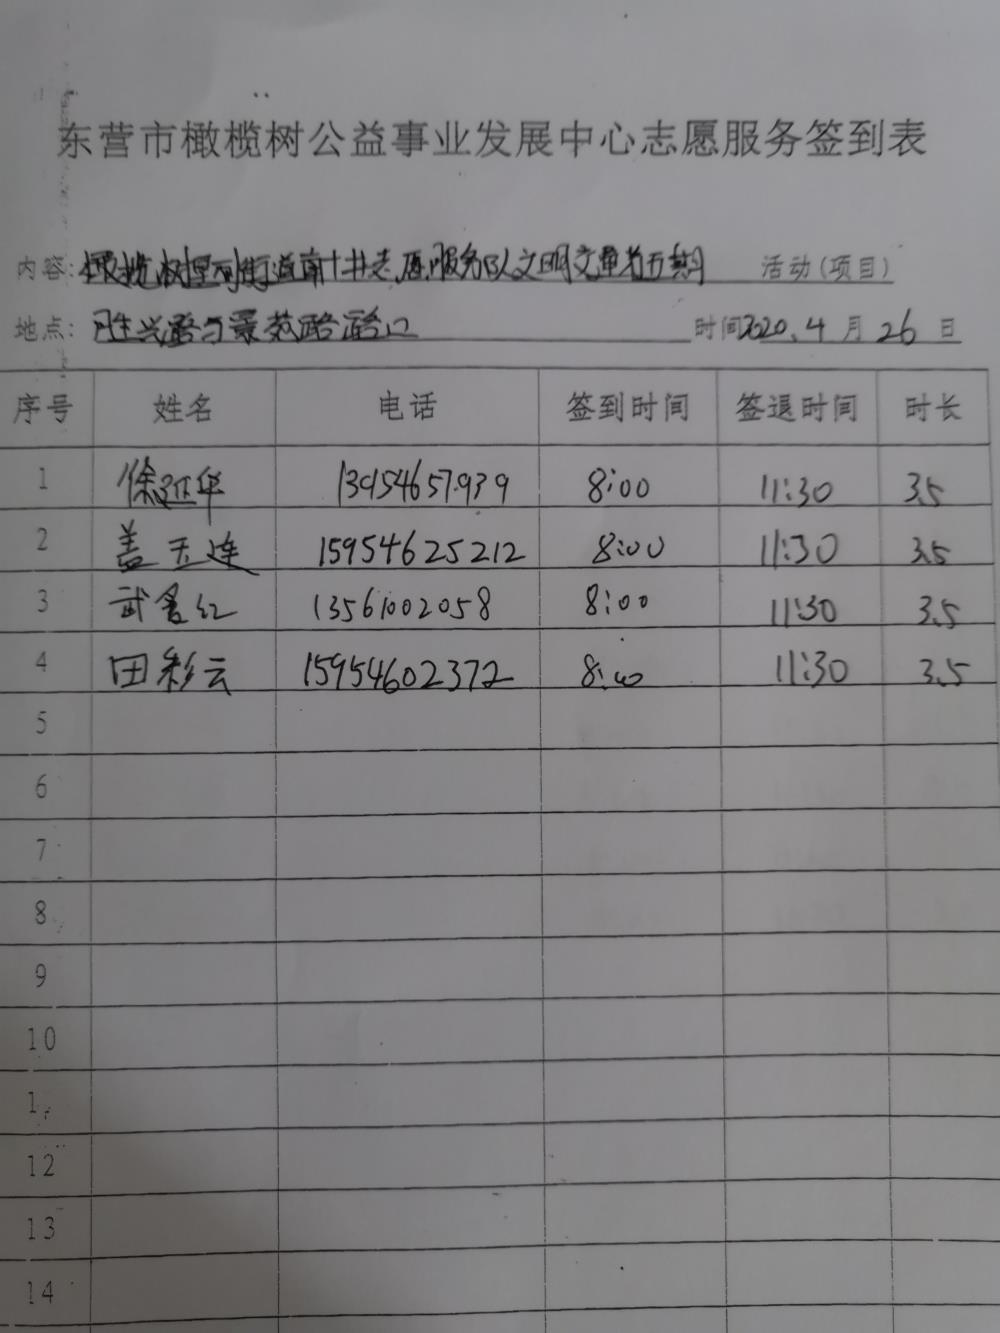 东营市橄榄树公益事业发展中心志愿服务签到表
内容: 橄榄树 街道 志愿服务队文明交 活动(项目)
地点: 胜兴路与景苑路路口 时间2020.4月26日
序号 姓名 电话 签到时间 签退时间 时长
1 徐延华 13954657939 8:00 11:30 3.5
2 盖玉连 15954625212 8:00 11:30 3.5
3 武 红 13561002058 8:00 11:30 3.5
4 田彩云 15954602372 8:00 11:30 3.5
5
6
7
8
9
10
1
12
13
14